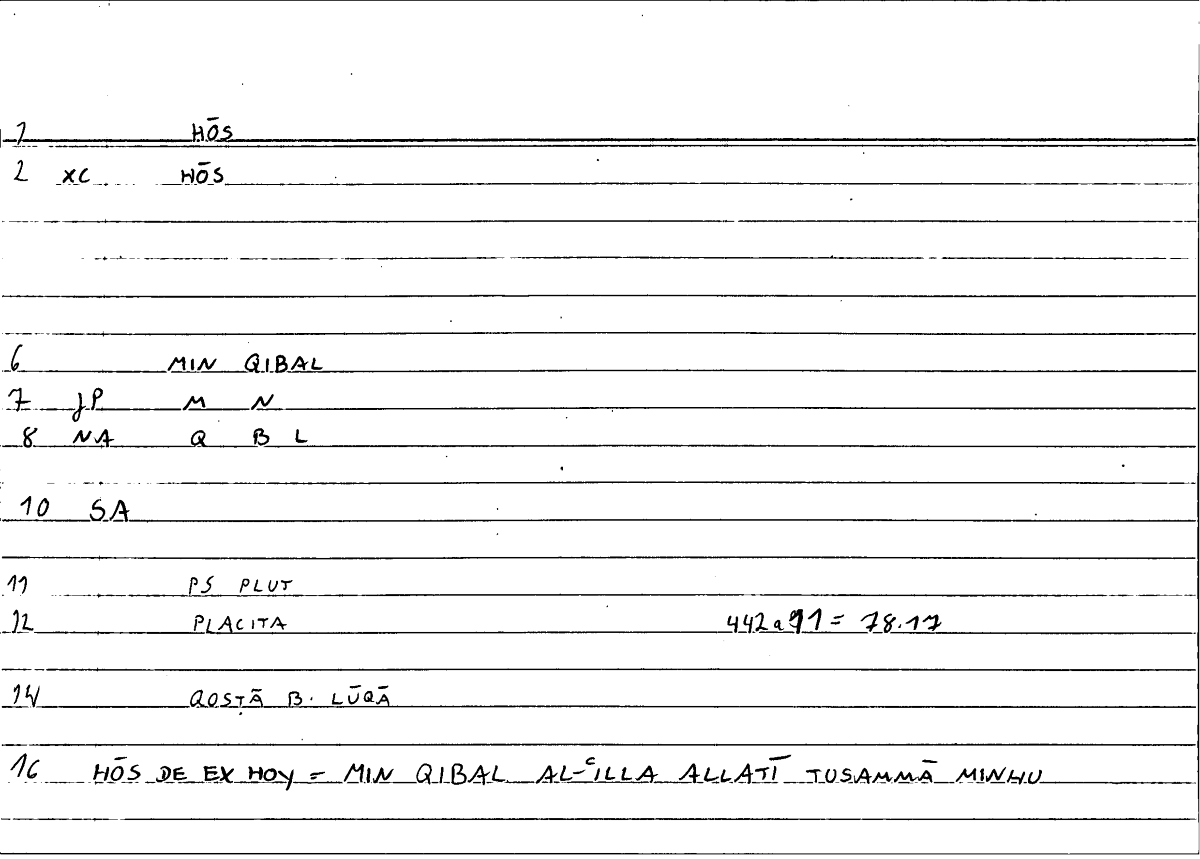 1 HŌS
2 XC HŌS
6 MIN QIBAL
7 JP M N
8 NA Q B L
10 SA
11 PS PLUT
12 PLACITA 442a91 = 78.17
14 QOSṬĀ B. LŪQĀ
16 HŌS DE EX HOY = MIN QIBAL AL-ʿILLA ALLATĪ TUSAMMĀ MINHU